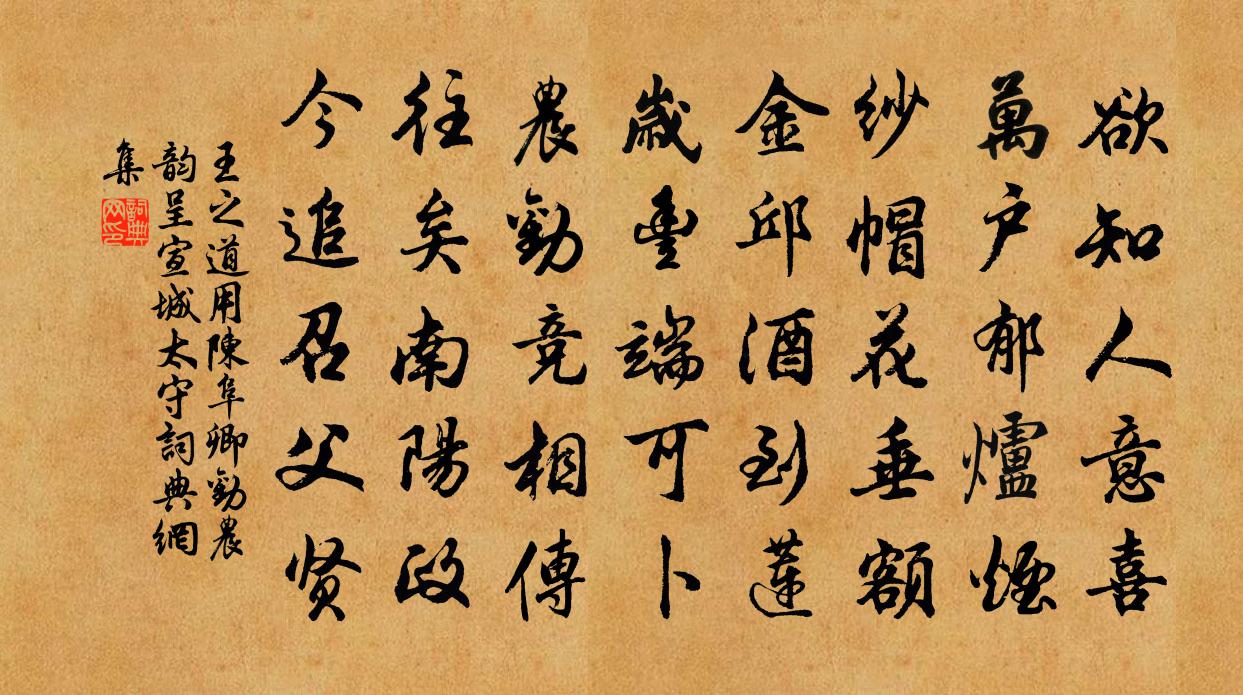 欲知人意喜
萬户郁爐煙
紗帽花垂額
金邱酒到蓮
歲豐端可卜
農勸競相傳
往矣南陽政
今追召父贤
王之道用陳阜卿勸農
韵呈宣城太守詞典網
集
詞典網印